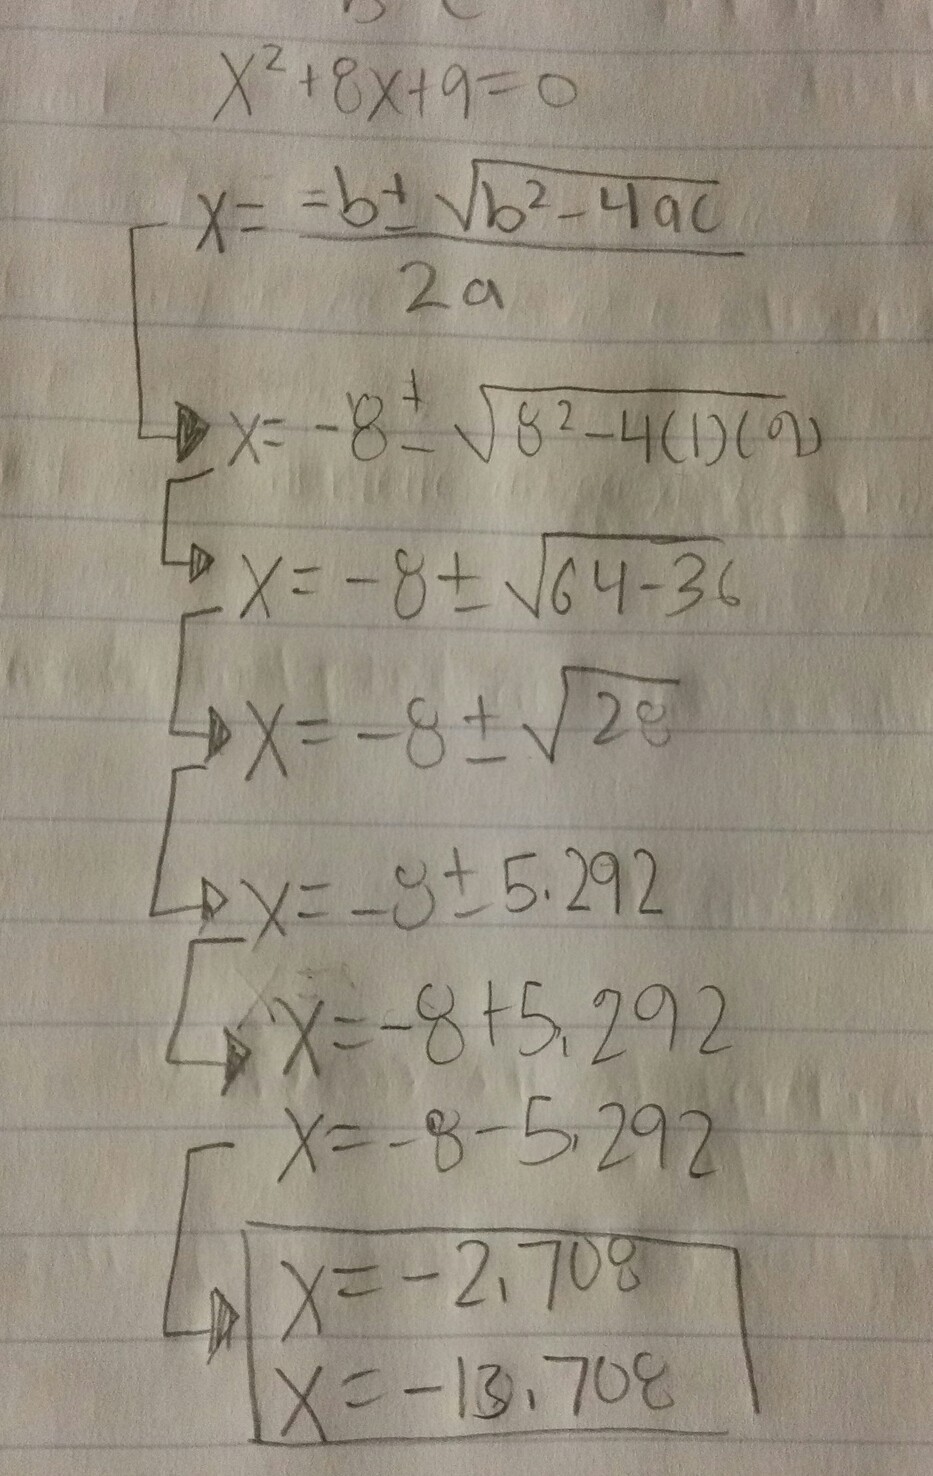 x²+8x+9=0
x= =b± √b²-4ac
2a
x= -8± √8²-4(1)(9)
x= -8± √64-36
x= -8± √28
x= -8±5.292
x=-8+5.292
x=-8-5.292
x=-2.708
x=-13.708